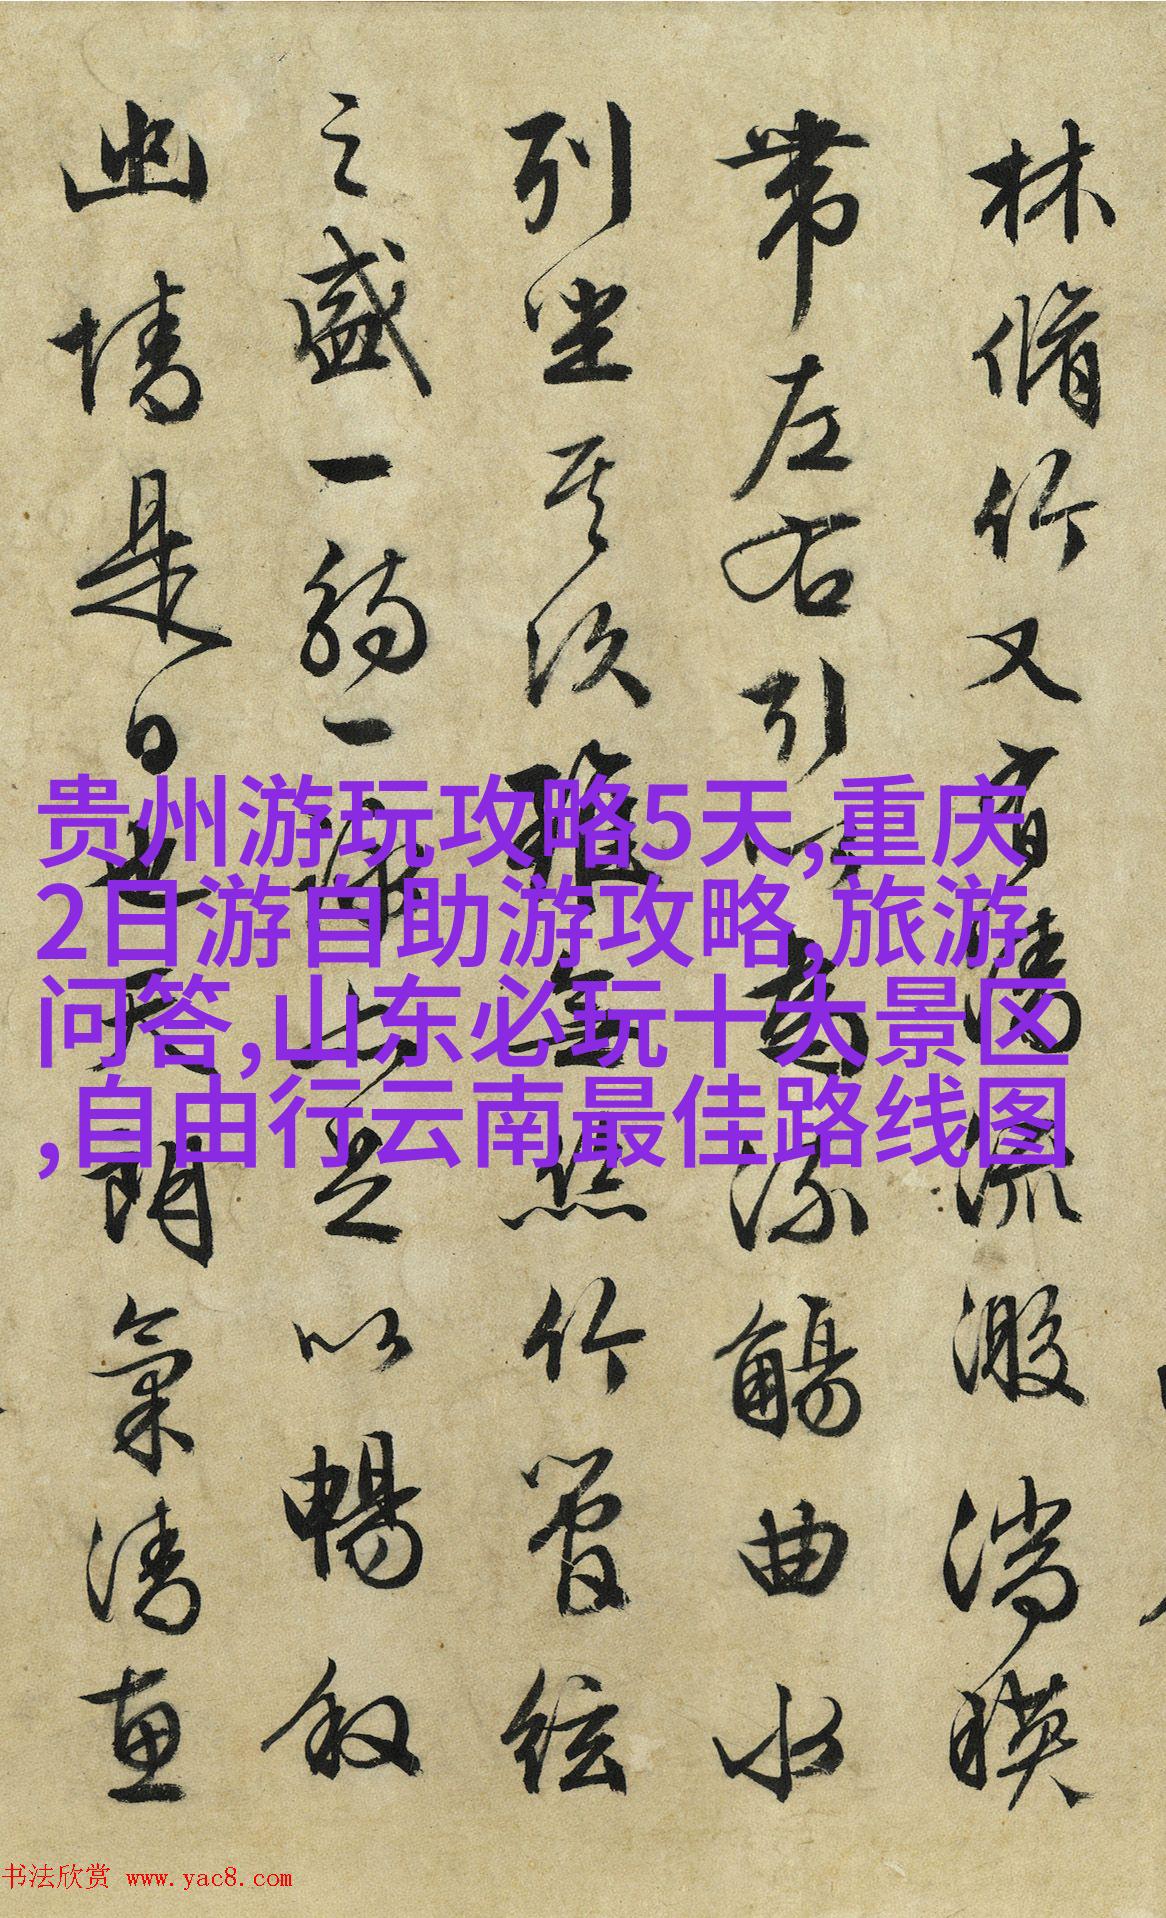 林脩竹又有清流激湍暎
帶左右引以為流觴曲水
列坐其次雖無絲竹管絃
之盛一觴一詠亦足以暢叙
幽情是日也天朗氣清惠
贵州游玩攻略5天,重庆
2日游自助游攻略,旅游
问答,山东必玩十大景区
,自由行云南最佳路线图
书法欣赏 www.yac8.com